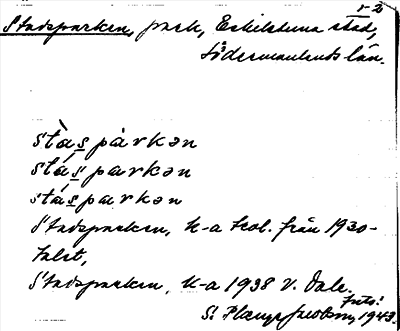 1-2
Stadsparken, park, Eskilstuna stad,
Södermanlands län.
stàs pàrkən
stás parkən
stás parkən
Stadsparken, K-a skol. från 1930-
talet,
Stadsparken, K-a 1938 V. Dale.
foto:
S. 1943.